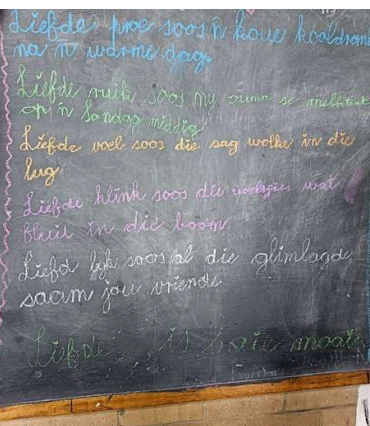 Liefde proe soos 'n koue kooldrank
na 'n warme dag.
Liefde ruik soos my ouma se melktert
op 'n Sondag middag
Liefde voel soos die sag wolke in die
lug
Liefde klink soos die voelgies wat
fluit in die boom.
Liefd lyk soos al die glimlagde
saam jou vriende
Liefde is baie mooi